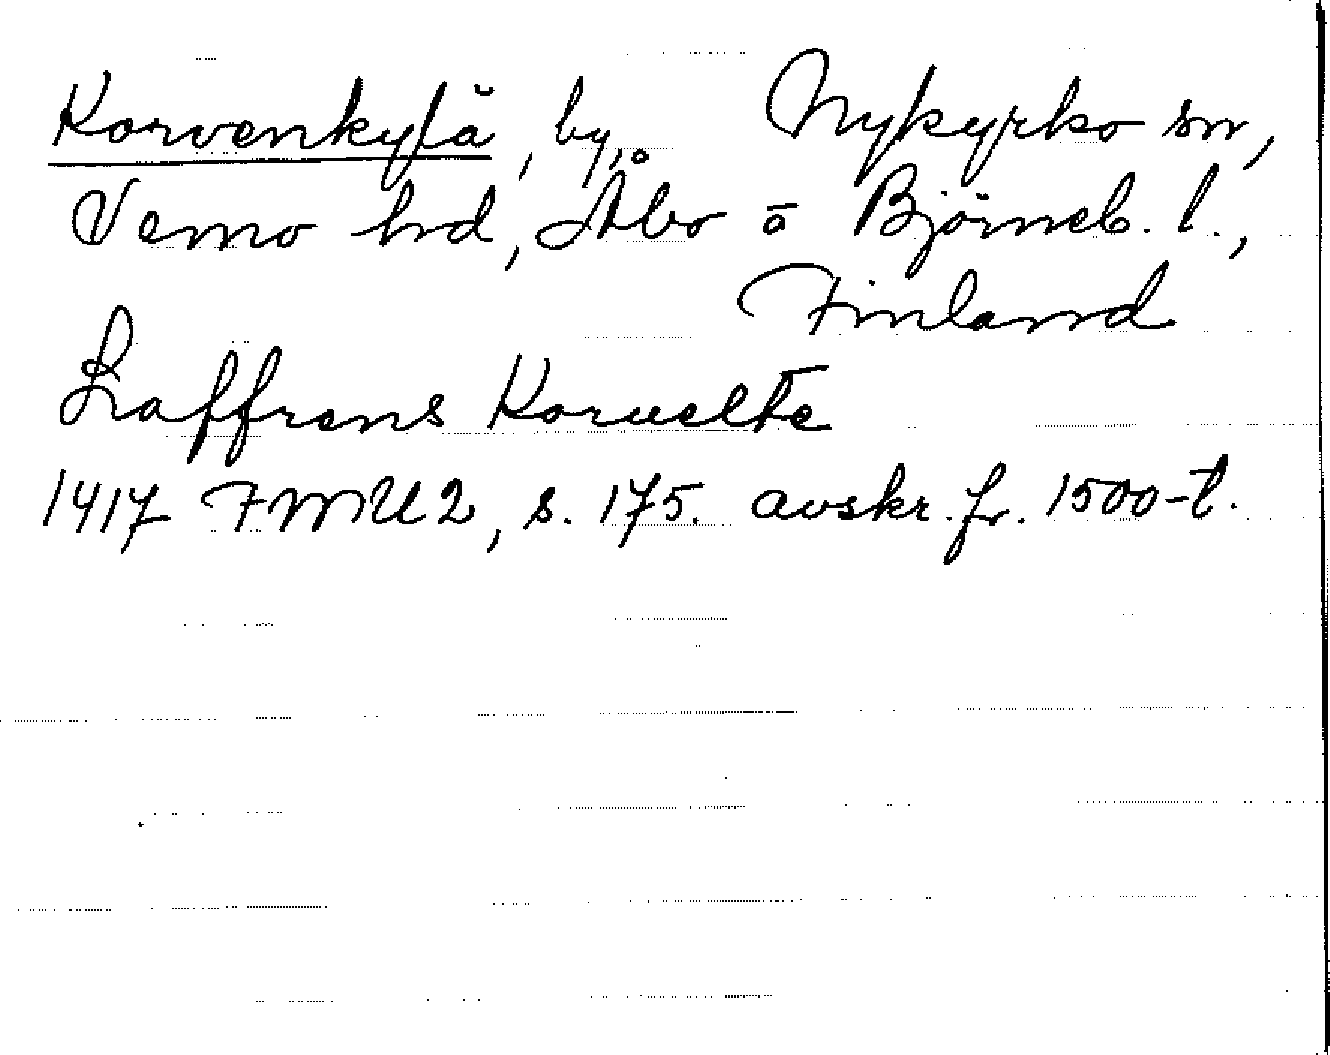 Korvenkylä, by, Nykyrko sn,
Vemo hrd, Åbo o Björneb. l.,
Finland
Laffrens Koruelte
1417 FMU 2, s. 175. avskr. fr. 1500-t.